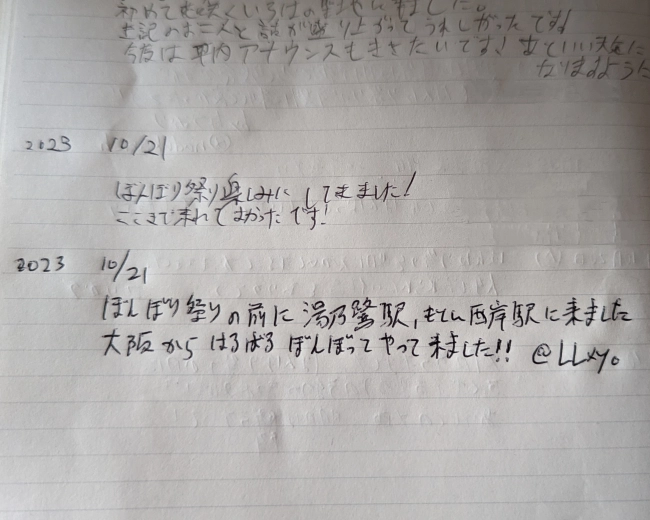 初めて花咲くいろはの聖地に来ました。
上記のお二人と話が盛り上がってうれしかったです!
今度は車内アナウンスもききたいです!
2023 10/21
ぼんぼり祭り楽しみにしてきました!
ここまで来れてよかったです!
2023 10/21
ぼんぼり祭りの前に湯乃鷺駅,もとい西岸駅に来ました
大阪からはるばるぼんぼってやって来ました!! @LLxyo